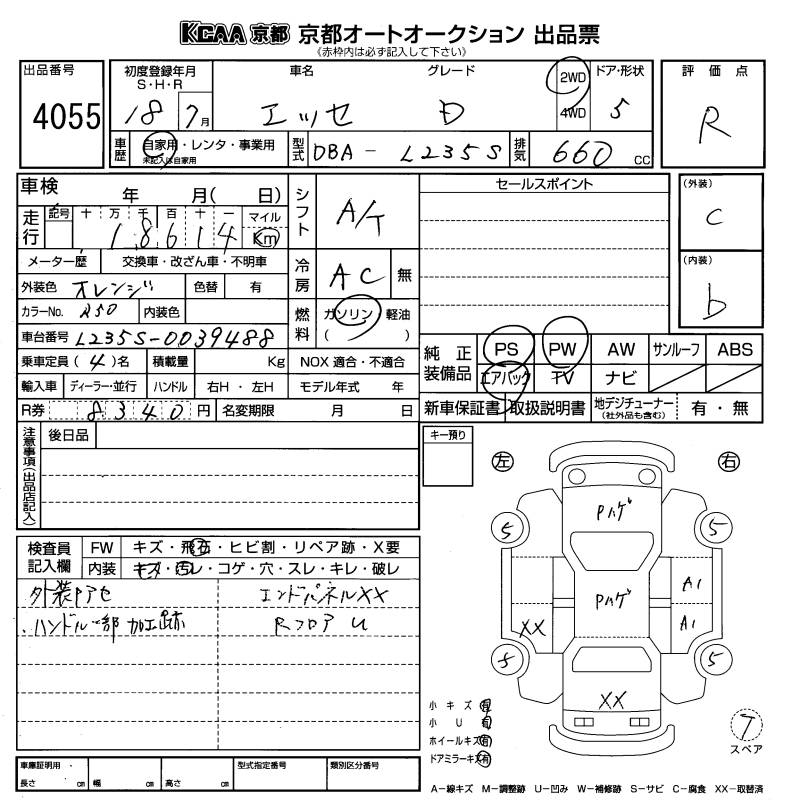 KCAA 京都 京都オートオークション 出品票
《赤枠内は必ず記入して下さい》
出品番号
4055
初度登録年月
S・H・R
18 7月
車名
エッセ
グレード
D
2WD
4WD
ドア・形状
5
評価点
R
車歴
自家用・レンタ・事業用
未記入は自家用
型式
DBA - L235S
排気
660 cc
車検 年 月( 日)
走行
記号 十 万 千 百 十 一 マイル
1 8 6 1 4 Km
メーター歴 交換車・改ざん車・不明車
外装色 オレンジ 色替 有
カラーNo. R50 内装色
車台番号 L235S-0039488
乗車定員 (4)名 積載量 Kg NOX 適合・不適合
輸入車 ディーラー・並行 ハンドル 右H・左H モデル年式 年
R券 8340円 名変期限 月 日
シフト
A/T
冷房
AC 無
燃料
ガソリン 軽油
( )
セールスポイント
(外装)
C
(内装)
b
純正装備品
PS PW AW サンルーフ ABS
エアバック TV ナビ
新車保証書 取扱説明書 地デジチューナー
(社外品も含む)
有・無
注意事項(出品店記入)
後日品
キー預り
左
右
検査員記入欄
FW キズ・飛石・ヒビ割・リペア跡・X要
内装 キズ・汚レ・コゲ・穴・スレ・キレ・破レ
外装Pアセ エンドパネルXX
ハンドル一部加工跡 Rフロア U
Pハゲ
5 5
Pハゲ
A1
XX
A1
5 5
XX
小キズ 有
小 U 有
ホイールキズ 有
ドアミラーキズ 有
T
スペア
車庫証明用
長さ cm 幅 cm 高さ cm
型式指定番号
類別区分番号
A―線キズ M―調整跡 U―凹み W―補修跡 S―サビ C―腐食 XX―取替済